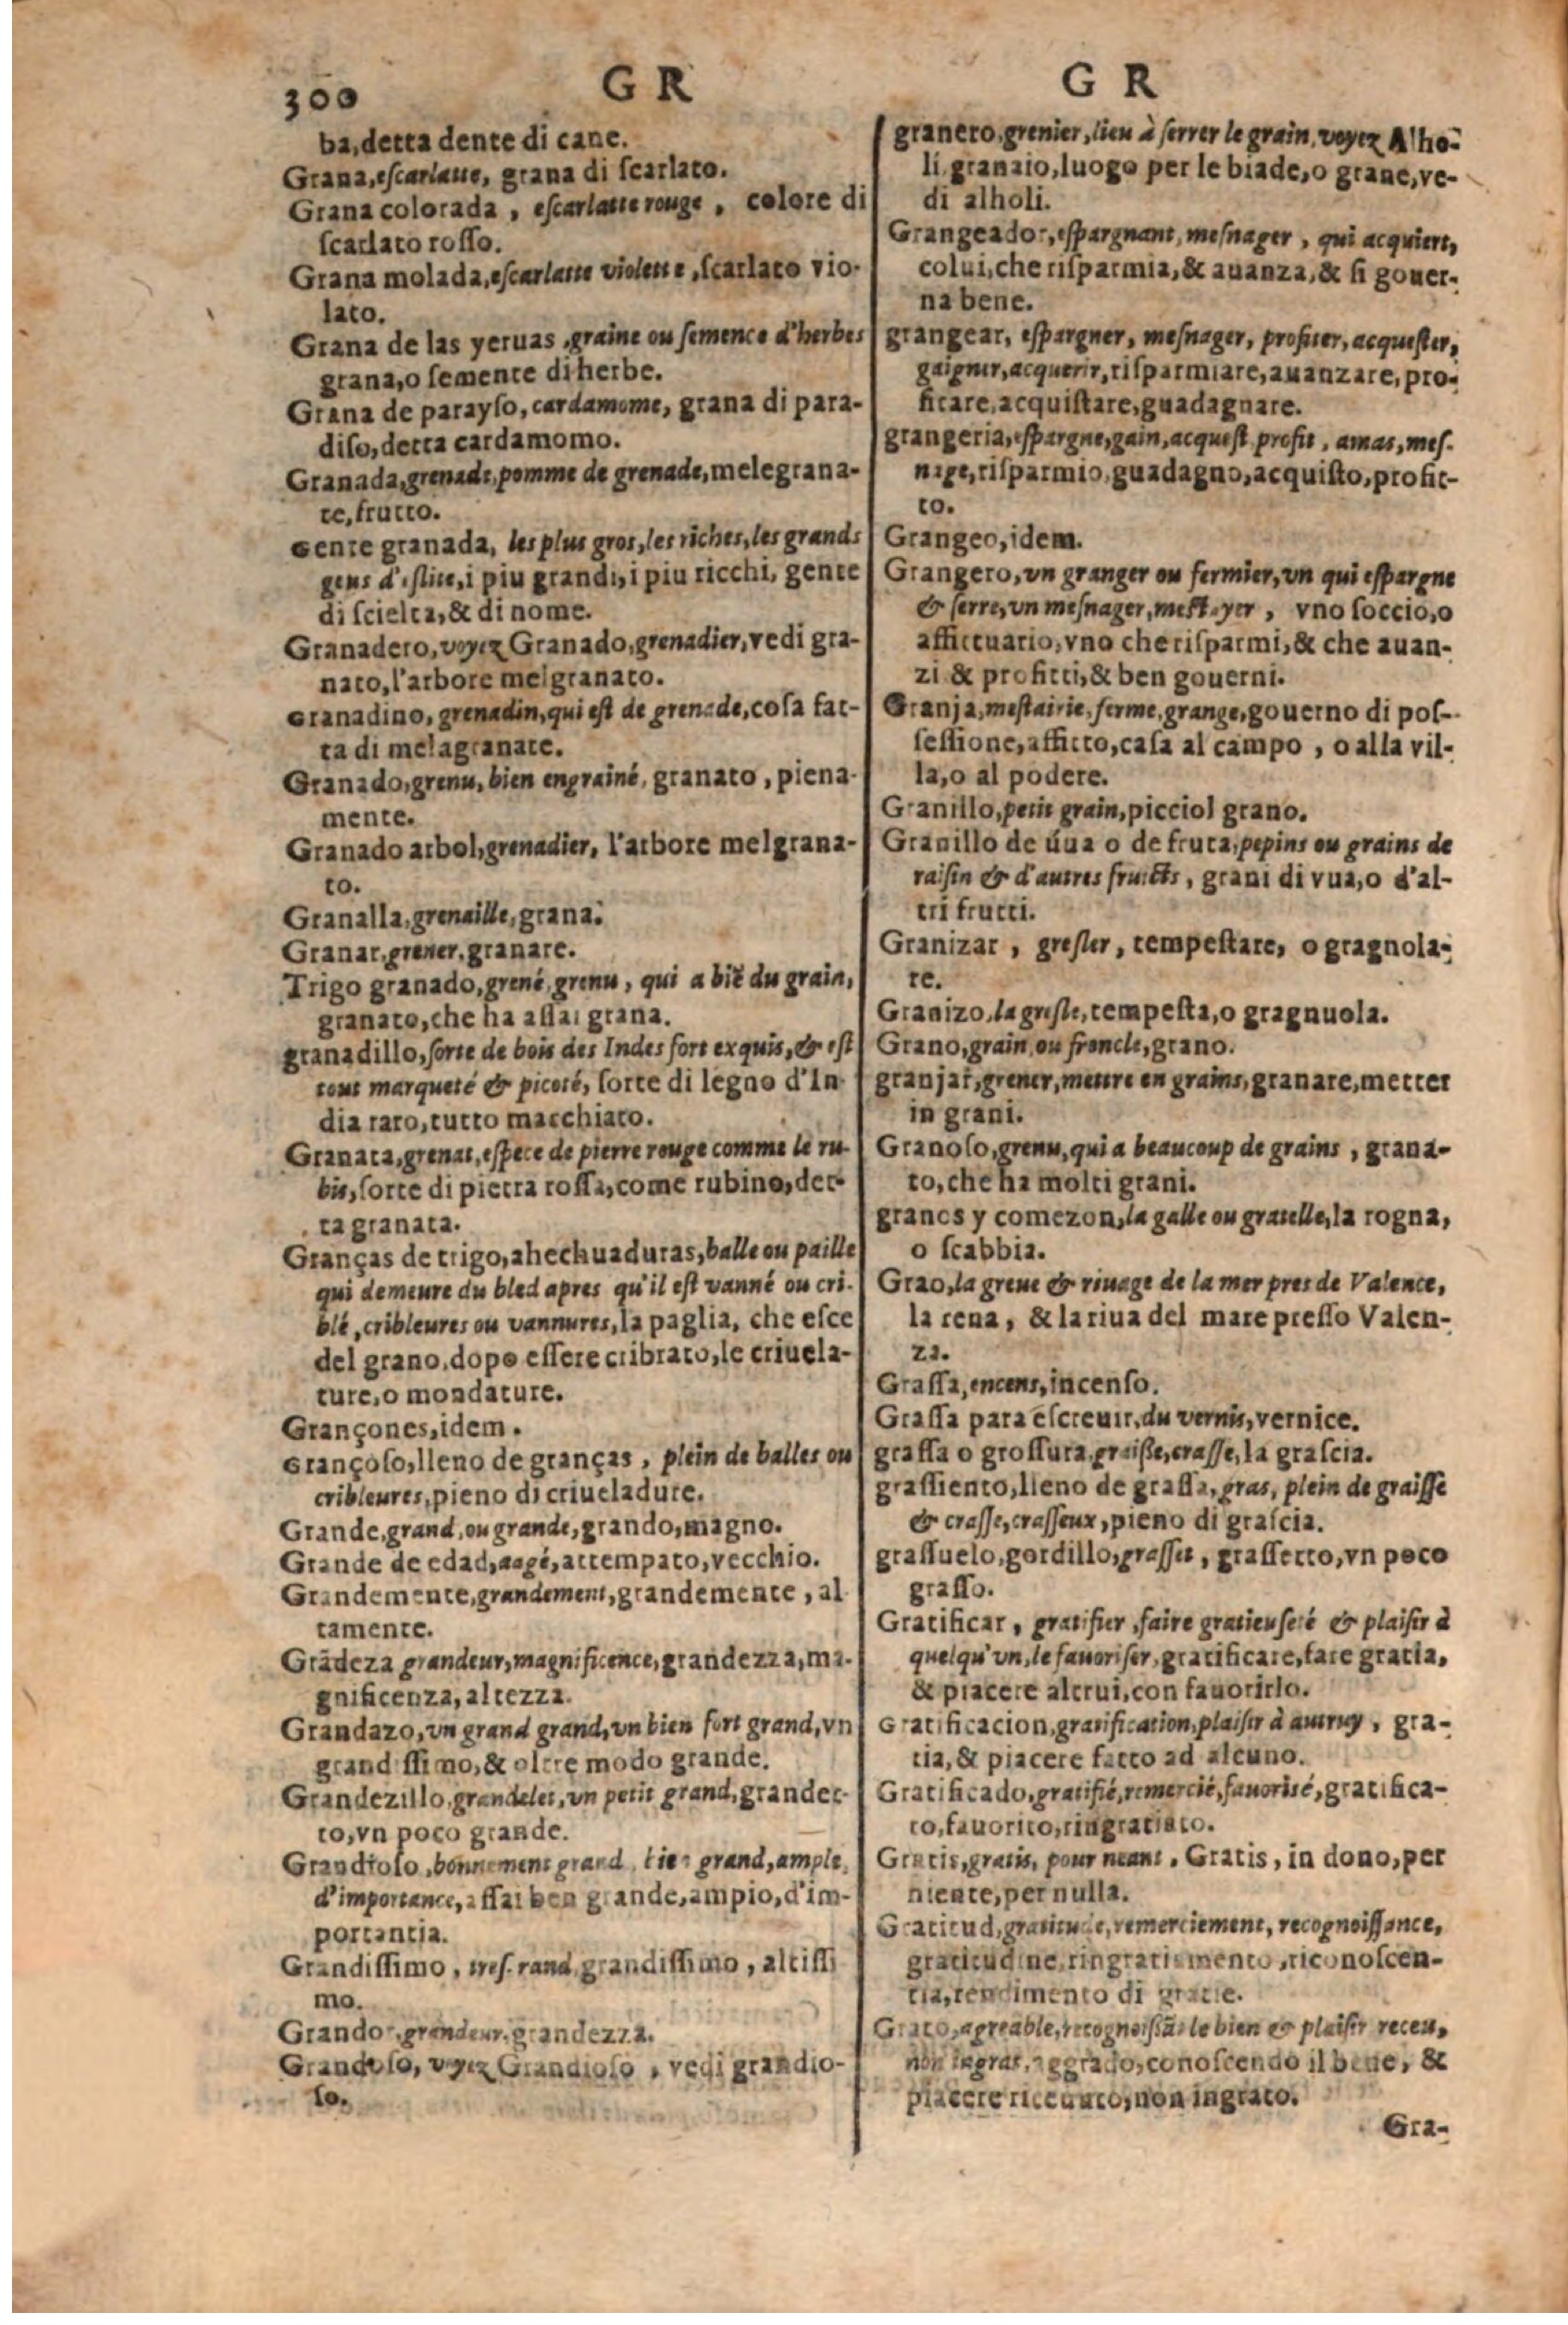 300 G R G R
ba,detta dente di cane.
Grana,escarlatte, grana di scarlato.
Grana colorada , escarlatte rouge , colore di
scarlato rosso.
Grana molada,escarlatte violette ,scarlato vio-
lato.
Grana de las yeruas ,graine ou semence d'herbes
grana,o semente di herbe.
Grana de parayso, cardamome, grana di para-
diso,detta cardamomo.
Granada,grenade,pomme de grenade,melegrana-
te,frutto.
Gente granada, les plus gros,les riches,les grands
gens d'eslite,i piu grandi,i piu ricchi, gente
di scielta,& di nome.
Granadero,voyez Granado,grenadier,vedi gra-
nato,l'arbore melgranato.
Granadino, grenadin,qui est de grenade,cosa fat-
ta di melagranate.
Granado,grenu, bien engrainé, granato , piena-
mente.
Granado arbol,grenadier, l'arbore melgrana-
to.
Granalla,grenaille,grana.
Granar,grener,granare.
Trigo granado,grené,grenu, qui a biē du grain,
granato,che ha assai grana.
granadillo,sorte de bois des Indes fort exquis,& est
tout marqueté & picoté, sorte di legno d'In-
dia raro,tutto macchiato.
Granata,grenat,espece de pierre rouge comme le ru-
bis,sorte di pietra rossa,come rubino,det-
ta granata.
Granças de trigo,ahechuaduras,balle ou paille
qui demeure du bled apres qu'il est vanné ou cri-
blé,cribleures ou vannures,la paglia, che esce
del grano,dopo essere cribrato,le criuela-
ture,o mondature.
Grançones,idem.
Grançoso,lleno de granças , plein de balles ou
cribleures,pieno di criueladure.
Grande,grand,ou grande,grando,magno.
Grande de edad,aagé,attempato,vecchio.
Grandemente,grandement,grandemente , al
tamente.
Grādeza grandeur,magnificence,grandezza,ma-
gnificenza,altezza.
Grandazo,vn grand grand,vn bien fort grand,vn
grandissimo,& oltre modo grande.
Grandezillo,grandelet,vn petit grand,grandet-
to,vn poco grande.
Grandioso ,bonnement grand, bien grand,ample,
d'importance,assai ben grande,ampio,d'im-
portantia.
Grandissimo , tresgrand,grandissimo , altissi
mo.
Grandor,grandeur,grandezza.
Grandoso, voyez Grandioso , vedi grandio-
so.
granero,grenier,lieu à serrer le grain,voyez Alho-
li,granaio,luogo per le biade,o grane,ve-
di alholi.
Grangeador,espargnant,mesnager , qui acquiert,
colui,che risparmia,& auanza,& si gouer-
na bene.
grangear, espargner, mesnager, profiter,acquester,
gaigner,acquerir,risparmiare,auanzare,pro-
fitare,acquistare,guadagnare.
grangeria,espargne,gain,acquest,profit, amas,mes-
nage,risparmio,guadagno,acquisto,profit-
to.
Grangeo,idem.
Grangero,vn granger ou fermier,vn qui espargne
& serre,vn mesnager,mestayer , vno soccio,o
affittuario,vno che risparmi,& che auan-
zi & profitti,& ben gouerni.
Granja,mestairie,ferme,grange,gouerno di pos-
sessione,affitto,casa al campo , o alla vil-
la,o al podere.
Granillo,petit grain,picciol grano.
Granillo de úua o de fruta,pepins ou grains de
raisin & d'autres fruicts, grani di vua,o d'al-
tri frutti.
Granizar , gresler, tempestare, o gragnola-
re.
Granizo,la gresle,tempesta,o gragnuola.
Grano,grain,ou froncle,grano.
granjar,grener,mettre en grains,granare,metter
in grani.
Granoso,grenu,qui a beaucoup de grains , grana-
to,che ha molti grani.
granos y comezon,la galle ou gratelle,la rogna,
o scabbia.
Grao,la greue & riuage de la mer pres de Valence,
la rena , & la riua del mare presso Valen-
za.
Grassa,encens,incenso.
Grassa para escreuir,du vernis,vernice.
grassa o grossura,graisse,crasse,la grascia.
grassiento,lleno de grassa,gras, plein de graisse
& crasse,crasseux,pieno di grascia.
grassuelo,gordillo,grasset , grassetto,vn poco
grasso.
Gratificar , gratifier ,faire gratieuseté & plaisir à
quelqu'vn,le fauoriser,gratificare,fare gratia,
& piacere altrui,con fauorirlo.
Gratificacion,gratification,plaisir à autruy, gra-
tia,& piacere fatto ad alcuno.
Gratificado,gratifié,remercié,fauorisé,gratifica-
to,fauorito,ringratiato.
Gratis,gratis, pour neant , Gratis, in dono,per
niente,per nulla.
Gratitud,gratitude,remerciement, recognoissance,
gratitudine,ringratiamento,riconoscen-
tia,rendimento di gratie.
Grato,agreable,recognoissāt le bien & plaisir receu,
non ingrat,aggrado,conoscendo il bene, &
piacere riceuuto,non ingrato.
Gra-